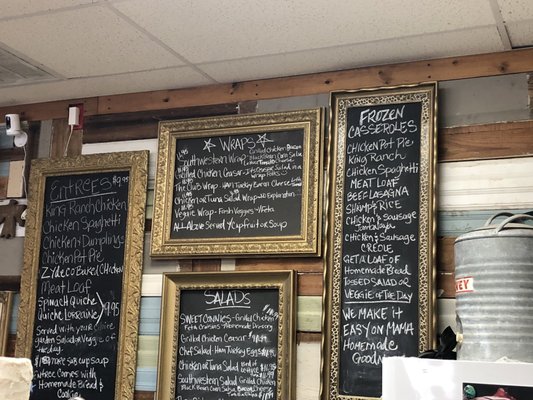 Entrees $9.95
King Ranch Chicken
Chicken Spaghetti
Chicken & Dumplings
Chicken Pot Pie
Zydeco Baked Chicken
Meat Loaf
Spinach Quiche
Quiche Lorraine
$9.95
Served with your choice
garden Salad or Veggie of
the day
sub cup soup
Entree Comes with
Homemade Bread &
Cookie
☆ Wraps ☆
Southwestern Wrap - Grilled Chicken
Black Bean Corn Salsa
Grilled Chicken Caesar
The Club Wrap - Ham Turkey Bacon Cheese
Chicken or Tuna Salad Wrap
Veggie Wrap - Fresh Veggies Feta
All Above Served w/ Cup Fruit or Soup
Salads
Sweet Connies - Grilled Chicken
Feta Craisins Homemade Dressing
Grilled Chicken Caesar
Chef Salad - Ham Turkey Eggs
Chicken or Tuna Salad
Southwestern Salad Grilled Chicken
Black Bean Corn Salsa
Frozen
Casseroles
Chicken Pot Pie
King Ranch
Chicken Spaghetti
Meat Loaf
Beef Lasagna
Shrimp & Rice
Chicken & Sausage
Jambalaya
Chicken & Sausage
Creole
Get a Loaf of
Homemade Bread
Tossed Salad or
Veggie of the Day
We Make It
Easy on Mama
Homemade